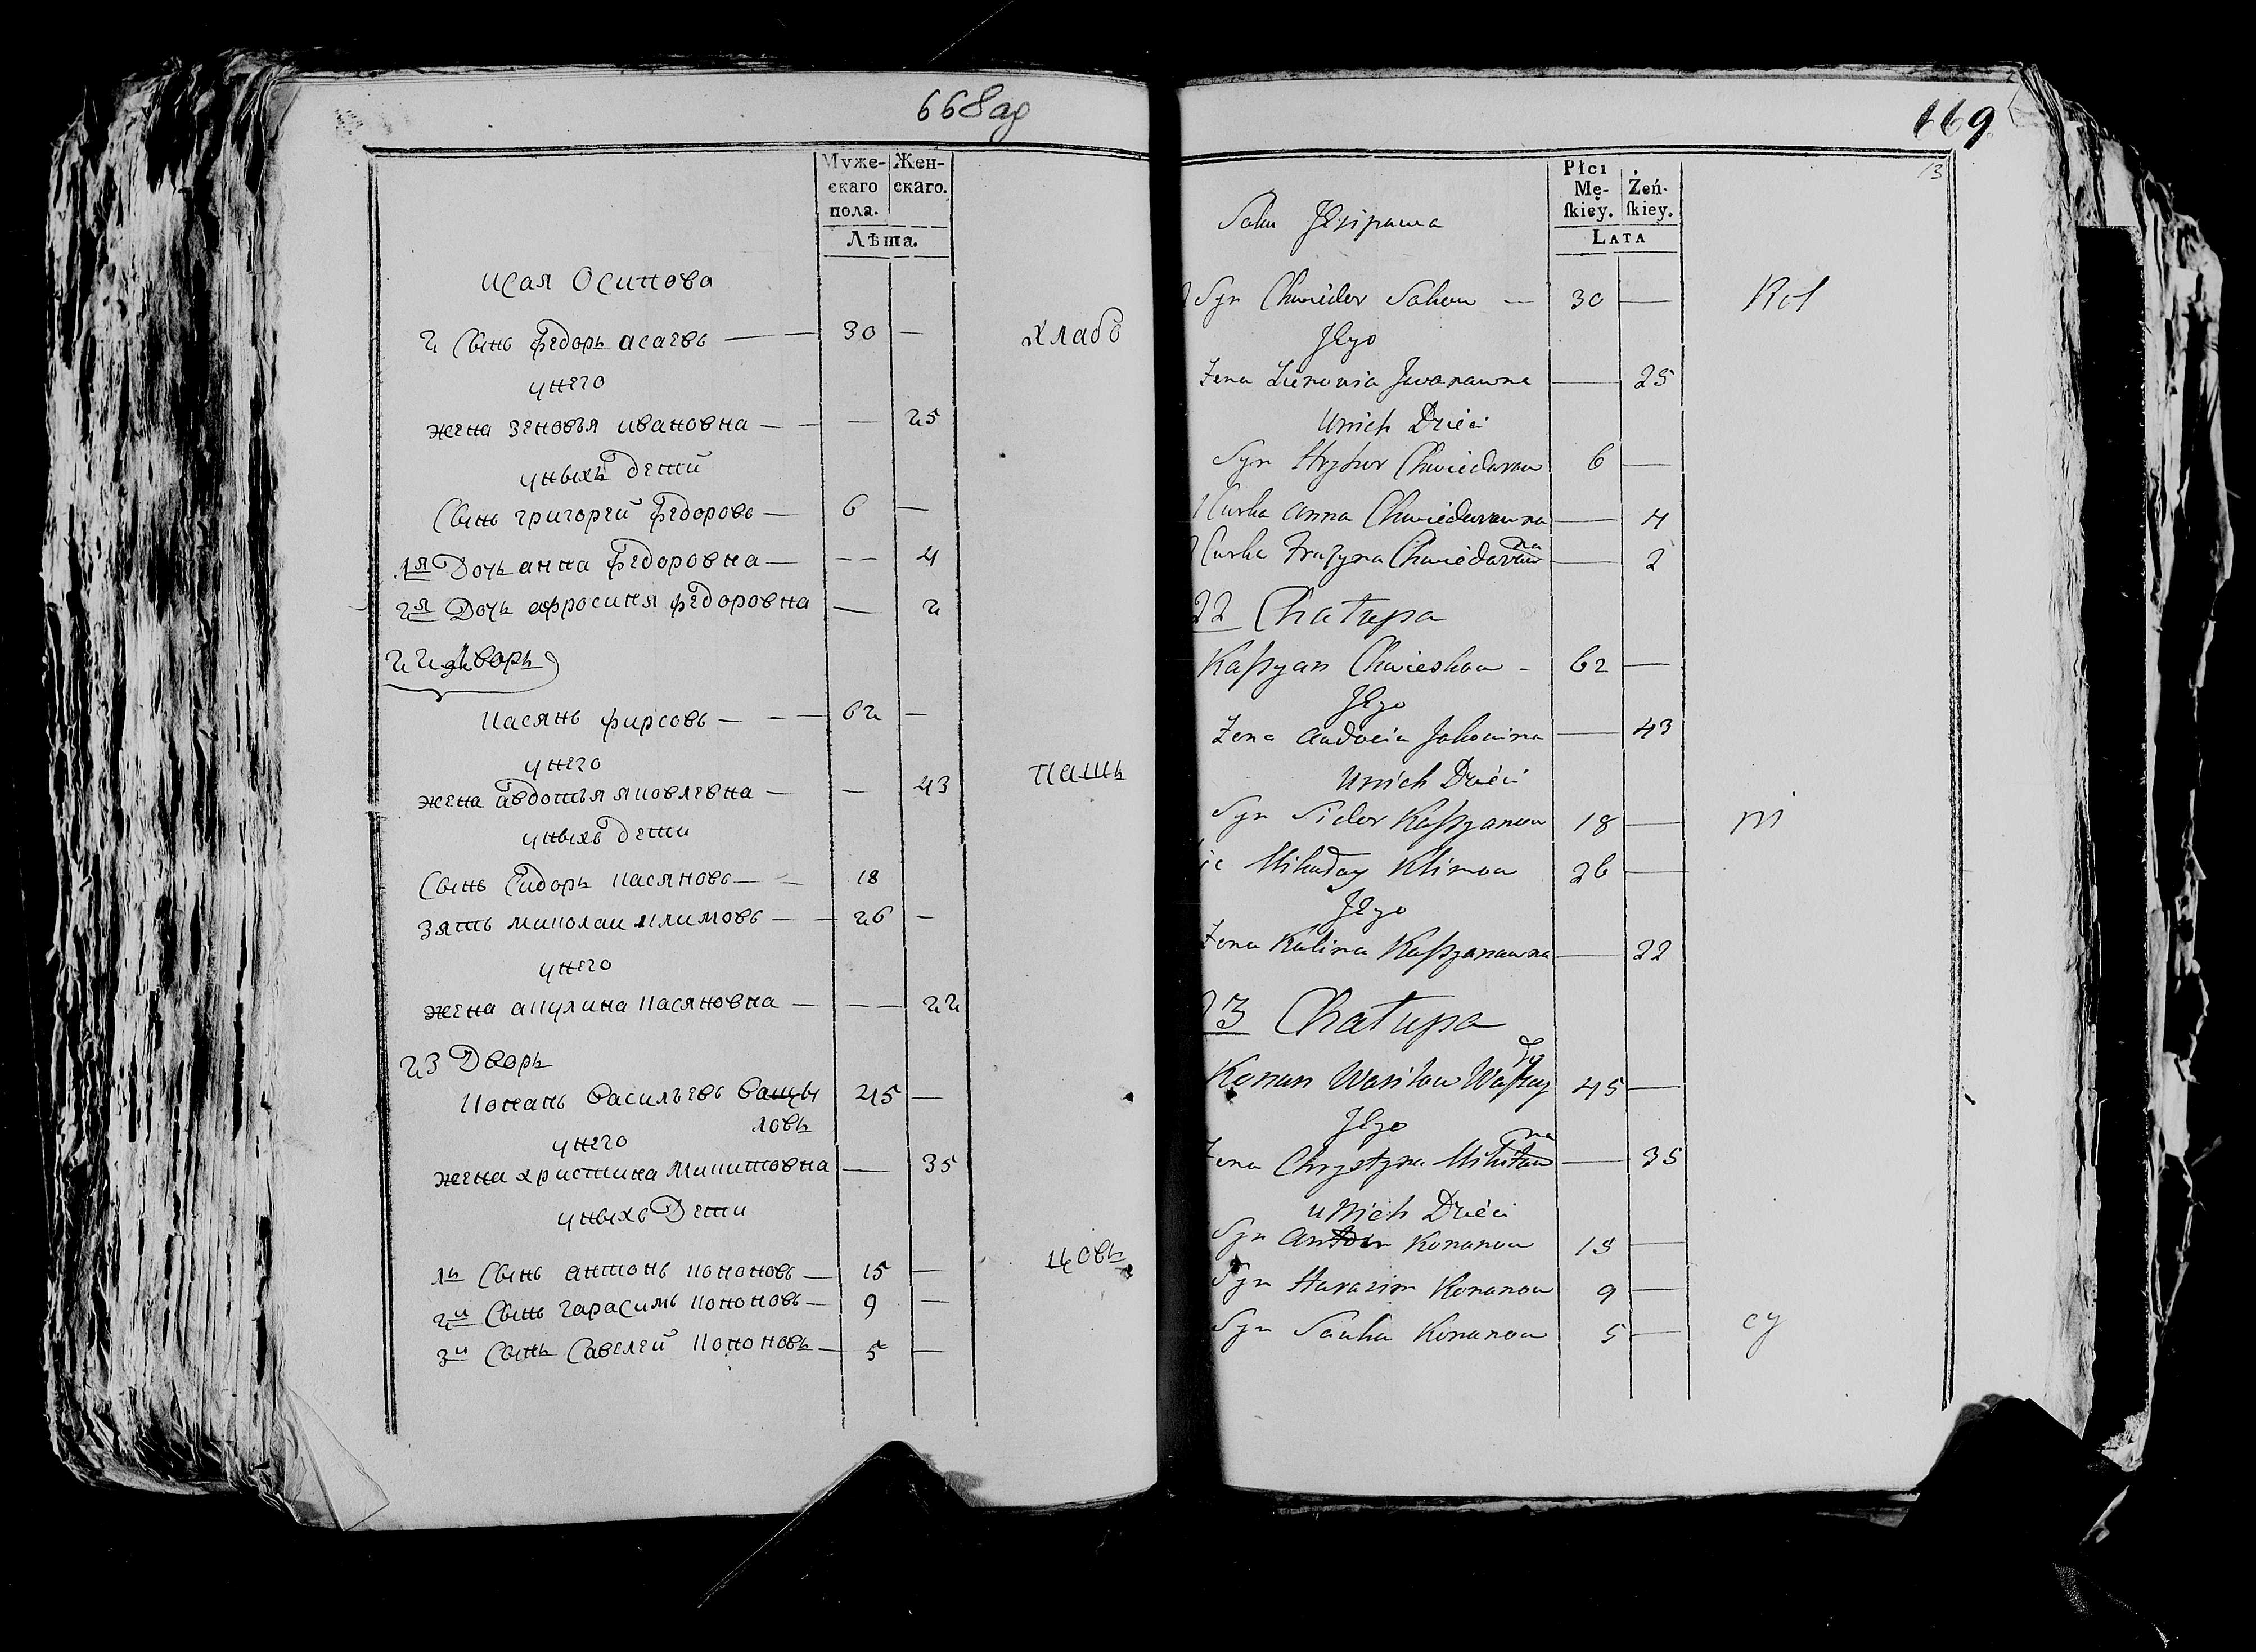 668 ад
Муже-
скаго
пола.
Жен-
скаго.
Лѣта.
исая Осипова
2 Сынъ федоръ асаевъ — 30 —
хлабо
унего
жена зеновья ивановна — — 25
уныхъ детей
Сынъ григорей федоровъ — 6 —
1я Дочь анна федоровна — — 4
2я Дочь афросиня федоровна — 2
22 Дворъ
касянъ фирсовъ — 62 —
унего
жена авдотья яковлевна — — 43
пашъ
уныхъ дети
Сынъ Сидоръ касяновъ — 18
зять миколаи климовъ — 26 —
унего
жена акулина касяновна — — 22
23 Дворъ
конанъ васильевъ
ловъ 45 —
унего
жена христина микитовна — 35
уныхъ Дети
1й Сынъ антонъ кононовъ — 15 —
цовъ
2й Сынъ гарасимъ кононовъ — 9 —
3й Сынъ Савелей кононовъ — 5 —
169
13
Płci
Mę-
ſkiey.
Żeń-
ſkiey.
Lata
Syn Chwiedor — 30 —
Rol
Jego
Żena Zienowia Jwanawna — 25
Unich Dzieci
Syn Hryhor Chwiedarau 6 —
Curka Anna Chwiedarauna — 4
Curka Fruzyna Chwiedarauna — 2
22 Chatupa
Kaſsyan Chwieskou - 62 —
Jego
Żena Audocia Jakowina — 43
Unich Dzieci
Syn Sidor Kaſsyanou 18 —
ni
Mikałay Klimou 26 —
Jego
Żena Kulina Kaſsyanawna — 22
23 Chatupa
Konan Wasilau 45 —
Jego
Żena Chrystyna Mikitauna — 35
u Nich Dzieci
Syn Anton Konanou 15 —
Syn Harasim Konanou 9 —
Syn Sauka Konanou 5 —
cy